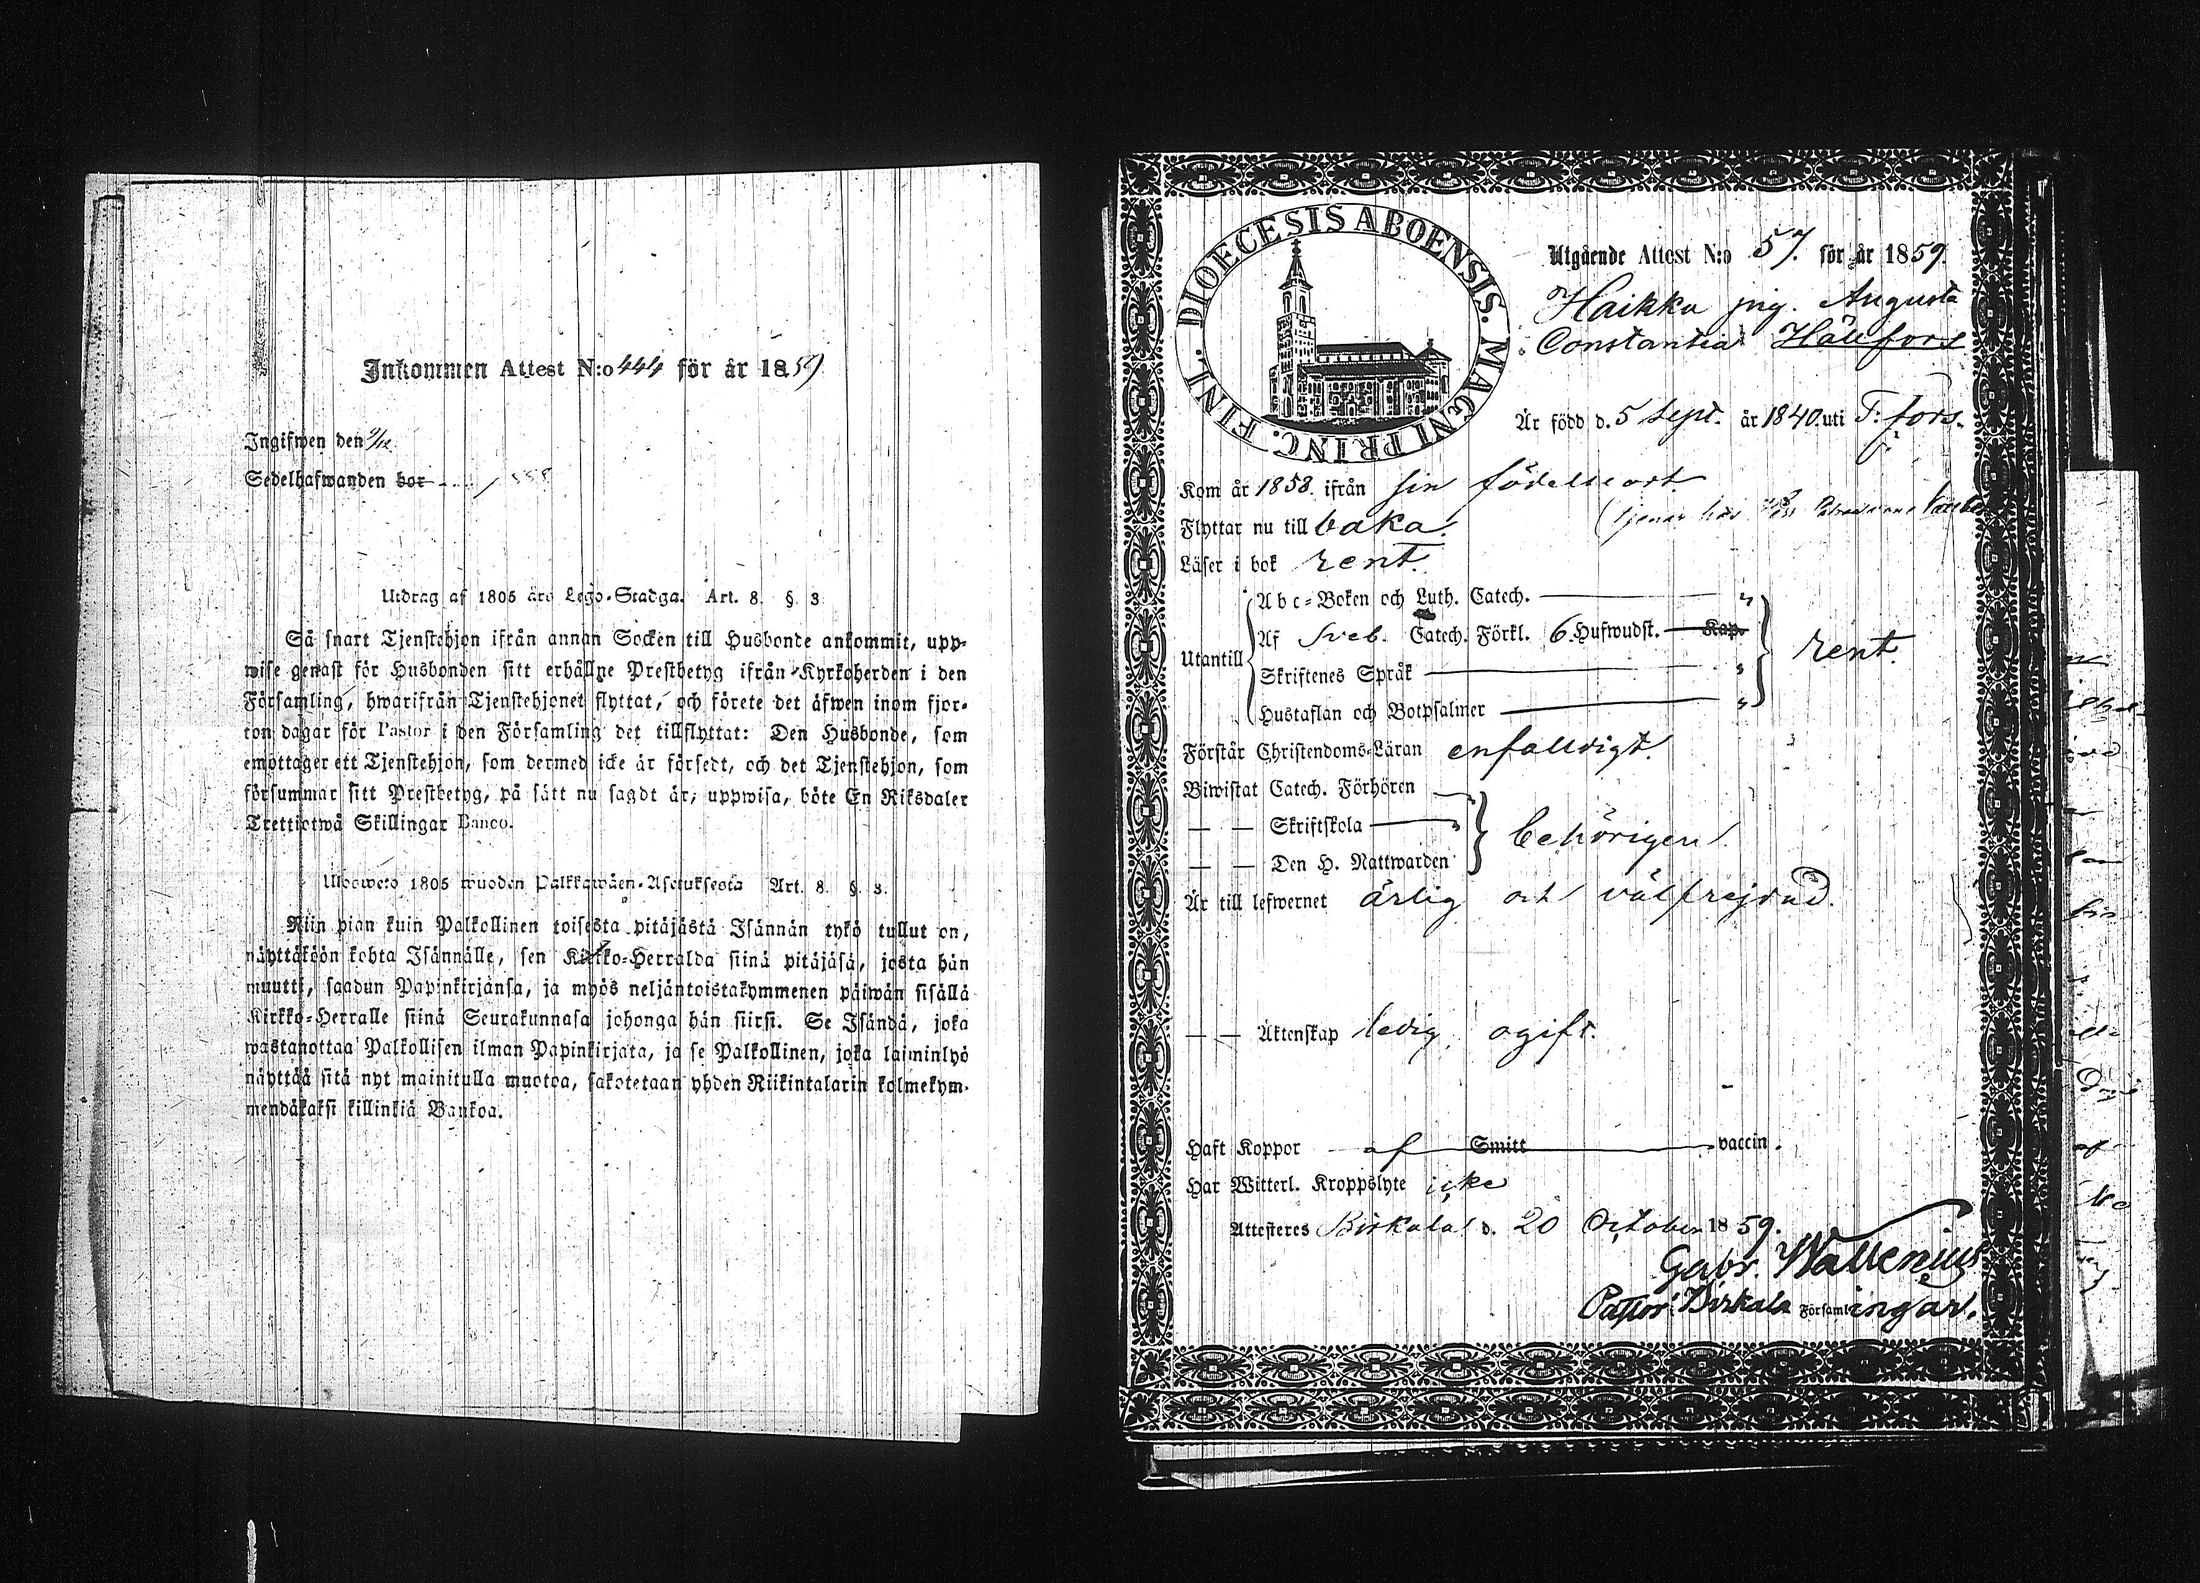 Inkommen Attest N:o 444 för år 1859
Ingifwen den 9/12
Sedelhafwanden bor
Utdrag af 1805 års Lego-Stadga. Art. 8. §. 3.
Så snart Tjenstehjon ifrån annan Socken till Husbonde ankommit, upp-
wise genast för Husbonden sitt erhållne Prestbetyg ifrån Kyrkoherden i den
Församling, hwarifrån Tjenstehjonet flyttat, och förete det äfwen inom fjor-
ton dagar för Pastor i den Församling det tillflyttat: Den Husbonde, som
emottager ett Tjenstehjon, som dermed icke är försedt, och det Tjenstehjon, som
försummar sitt Prestbetyg, på sätt nu sagdt är, uppwisa, böte En Riksdaler
Trettiotwå Skillingar Banco.
Ulosweto 1805 wuoden Palkkawäen-Asetuksesta Art. 8. §. 3.
Niin pian kuin Palkollinen toisesta pitäjästä Isännän tykö tullut on,
näyttäköön kohta Isännälle, sen Kirkko-Herralda siinä pitäjäsä, josta hän
muutti, saadun Papinkirjansa, ja myös neljäntoistakymmenen päiwän sisällä
Kirkko-Herralle siinä Seurakunnasa johonga hän siirsi. Se Isändä, joka
wastanottaa Palkollisen ilman Papinkirjata, ja se Palkollinen, joka laiminlyö
näyttää sitä nyt mainitulla muotoa, sakotetaan yhden Riikintalarin kolmekym-
mendäkaksi killinkiä Bankoa.
DIOECESIS ABOENSIS. MAGNI PRINC. FINL.
Utgående Attest N:o 57. för år 1859.
Haikka pig. Augusta
Constantia Hällfors
Är född d. 5 Sept. år 1840. uti T:fors.
Kom år 1858. ifrån sin födelseort.
(tjenar hos
Flyttar nu till baka.
Läser i bok rent.
Utantill
Abc-Boken och Luth. Catech. "
Af Sveb. Catech. Förkl. 6. Hufwudst. Kap.
Skriftenes Språk "
Hustaflan och Botpsalmer "
rent.
Förstår Christendoms-Läran enfalldigt.
Biwistat Catech. Förhören
— — Skriftskola
— — Den H. Nattwarden
behörigen.
Är till lefwernet ärlig och välfrejdad.
— — Äktenskap ledig ogift.
Haft Koppor af Smitt vaccin.
Har Witterl. Kroppslyte icke
Attesteres Birkala d. 20 October 1859.
Gabr. Wallenius
Pastor. Birkala Församlingar.